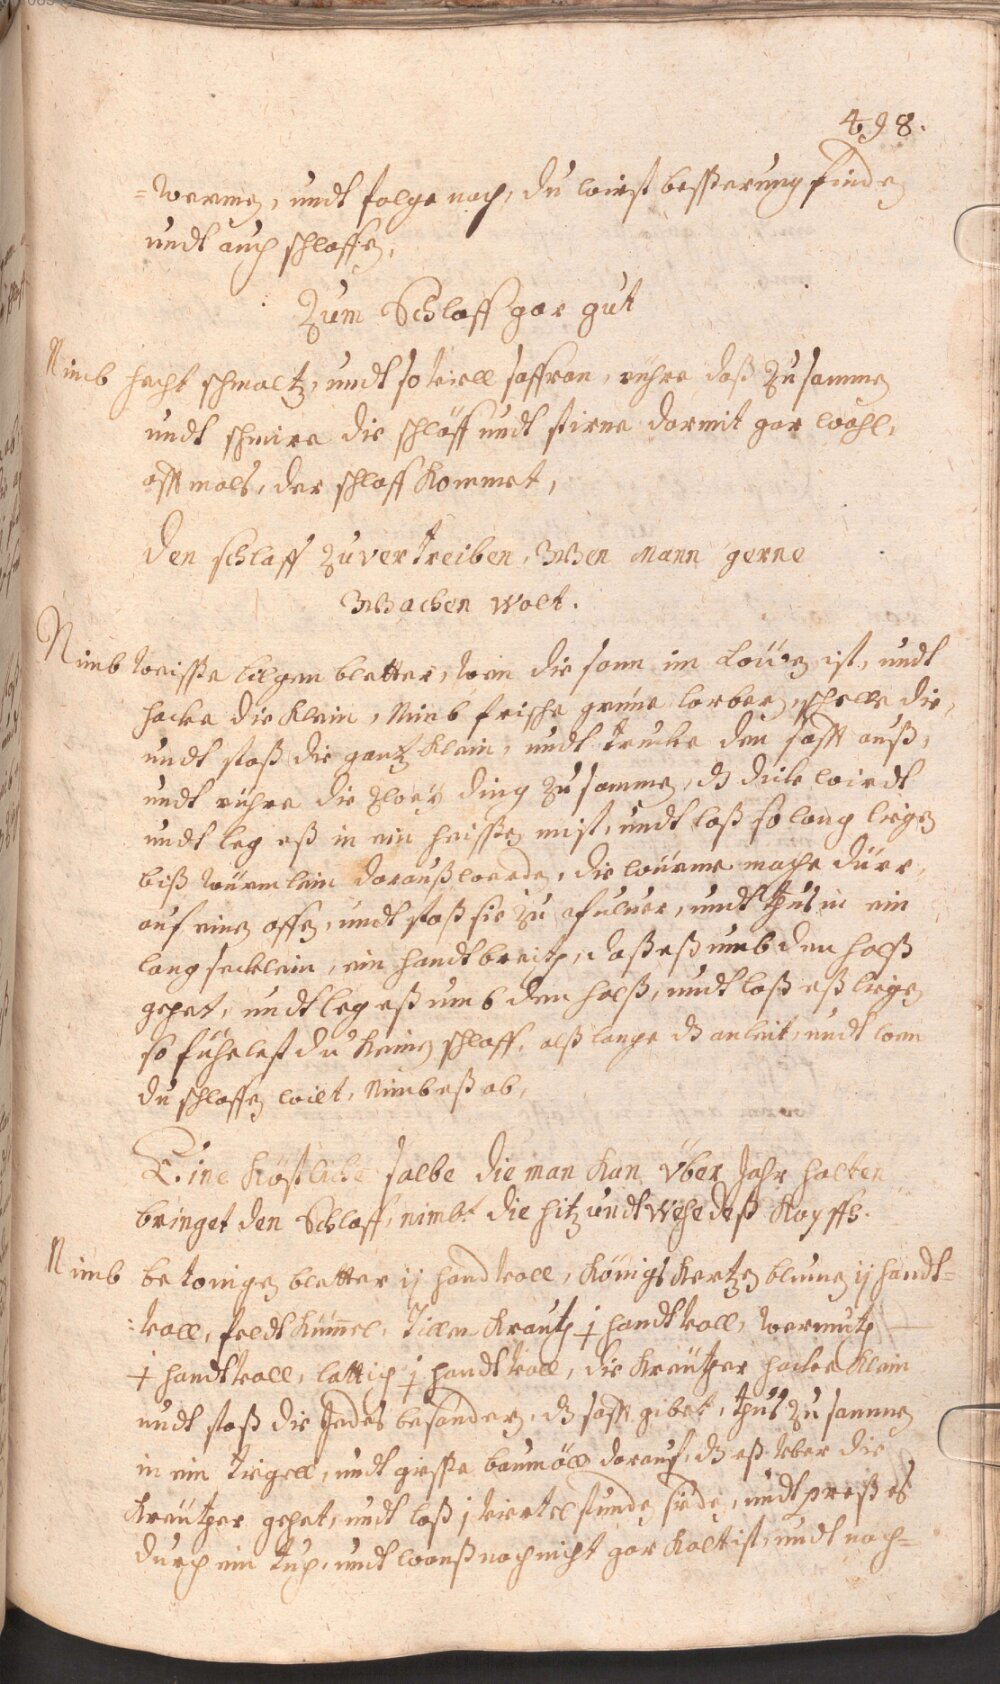 498.
=wermen, undt folge nach, du wirst besserung finden
undt auch schlaffen,
Zum Schlaff gar gut
Nimb hecht schmaltz, undt so viell saffran, rühre daß zusammen
undt schmire die schläff undt stirne darmit gar wohl,
offtmals, der schlaff kommet,
den schlaff zuvertreiben, Wen Mann gerne
Wachen wolt.
Nimb weisse lilgen bletter, wen die sonn im Löüwen ist, undt
hacke die klein, Nimb frische grüne lorberen, schelle die,
undt stoß die gantz klein, undt trucke den safft auß,
undt rühre die zwey ding zusammen, dz dicke wirdt
undt leg eß in ein heissen mist, undt laß so lang ligen
biß würmlein darauß werden, die würme mache dürr,
auf einen offen, undt stoß sie zu pfulver, undt thus in ein
lang secklein, ein handtbreith, daß eß umb den halß
gehet, undt leg eß umb den halß, undt laß eß ligen
so fühlest du keinen schlaff, alß lange dz anleit, undt wen
du schlaffen wilt, Nimb eß ab,
Eine köstliche salbe die man kan über Jahr halten
bringet den Schlaff, nimbt die hitz undt wehe deß Kopffs.
Nimb betonigen bletter ij handtvoll, Königs Kertzen blumen ij handt=
=voll, feldt Kümel, Tillen Krauth j handtvoll, wermuth
j handtvoll, lattich j handtvoll, die Kreütter hacke klein
undt stoß die jedes besonder, dz safft gibet, thus zusammen
in ein tigell, undt giesse baumöll darauf, dz eß über die
Kreütter gehet, undt laß j viertel stunde sieden, undt preß es
durch ein tuch, undt wanß noch nicht gar kalt ist, undt noch=